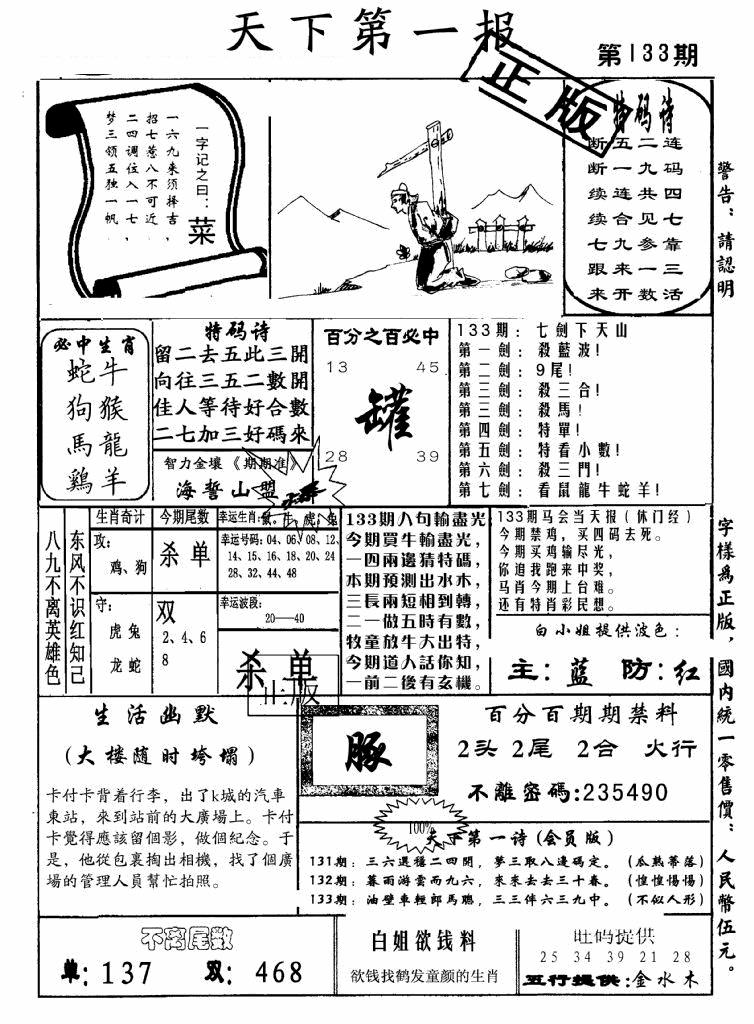 天下第一报
第133期
正版
一字记之曰：菜
一六九来须择吉，
招七惹八不可近，
二四调位入一七，
梦三领五独一帆，
特码诗
断五二连
断一九码
续连共四
续合见七
七九参靠
跟来一三
来开数活
警告：請認明
字樣爲正版，國内統一零售價：人民幣伍元。
必中生肖
蛇牛
狗猴
馬龍
鷄羊
特码诗
留二去五此三開
向往三五二數開
佳人等待好合數
二七加三好碼來
智力金壤《期期准》
海誓山盟
百分之百必中
13 45
罐
28 39
133期：七劍下天山
第一劍：殺藍波！
第二劍：9尾！
第三劍：殺三合！
第三劍：殺馬！
第四劍：特單！
第五劍：特看小數！
第六劍：殺三門！
第七劍：看鼠龍牛蛇羊！
八九不离英雄色
东风不识红知己
生肖奇计
攻：
鸡、狗
守：
虎兔
龙蛇
今期尾数
杀单
双
2、4、6
8
幸运生肖：鼠、牛、虎、兔
幸运号码：04、06、08、12、
14、15、16、18、20、24
28、32、44、48
幸运波段：
20——40
杀单
正版
133期八句輸盡光
今期買牛輸盡光，
一四兩邊猜特碼，
本期預測出水木，
三長兩短相到轉，
二一做五時有數，
牧童放牛大出特，
今期道人話你知，
一前二後有玄機。
133期马会当天报（休门经）
今期禁鸡，买四码去死。
今期买鸡输尽光，
你追我跑来中奖，
马肖今期上台难。
还有特肖彩民想。
白小姐提供波色：
主：蓝 防：红
生活幽默
（大楼随时垮塌）
卡付卡背着行李，出了k城的汽車
東站，來到站前的大廣場上。卡付
卡覺得應該留個影，做個紀念。于
是，他從包裹掏出相機，找了個廣
場的管理人員幫忙拍照。
豚
百分百期期禁料
2头 2尾 2合 火行
不離密碼：235490
100%
天下第一诗（会员版）
131期：三六選種二四開，夢三取八邊碼定。（瓜熟蒂落）
132期：暮雨游雲而九六，來來去去三十春。（惶惶惕惕）
133期：油壁車輕郎馬驄，三三伴六三九中。（不似人形）
不离尾数
单：137 双：468
白姐欲钱料
欲钱找鹤发童颜的生肖
旺码提供
25 34 39 21 28
五行提供：金水木